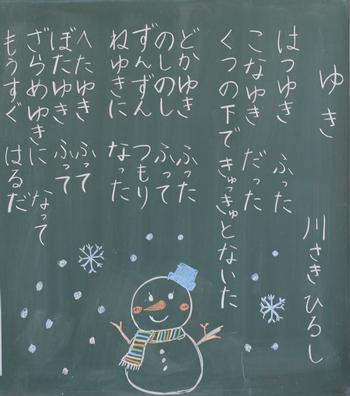 ゆき
川さきひろし
はつゆき　ふった
こなゆき　だった
くつの下できゅっきゅとないた
どかゆき　ふった
のしのし　ふって
ずんずん　つもり
ねゆきに　なった
べたゆき　ふって
ぼたゆき　ふって
ざらめゆきに　なって
もうすぐ　はるだ